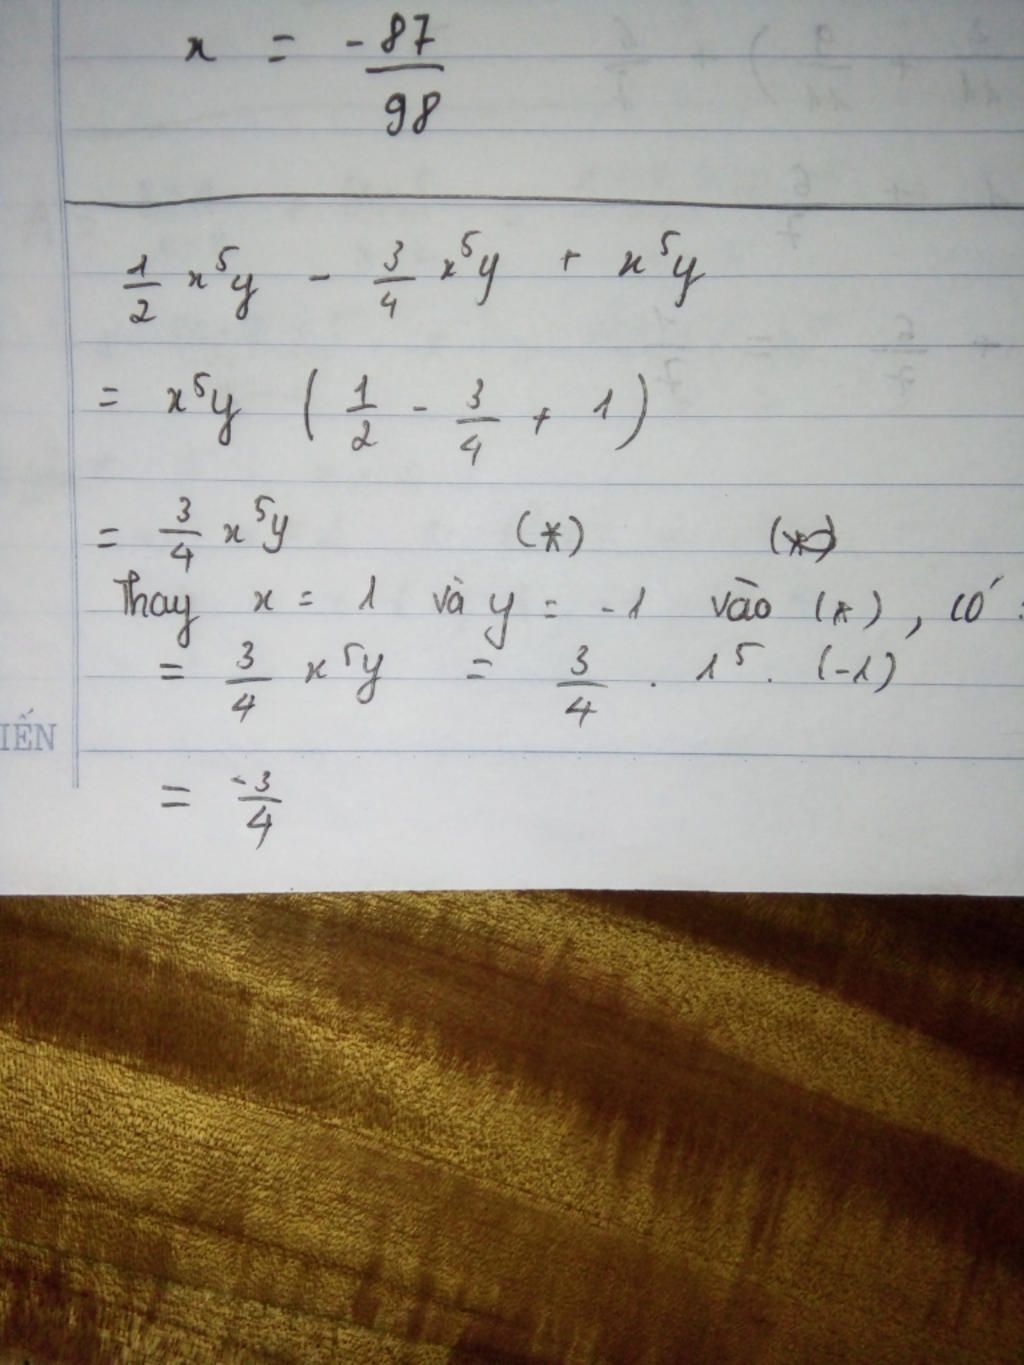 x = -87/98
1/2 x⁵y - 3/4 x⁵y + x⁵y
= x⁵y (1/2 - 3/4 + 1)
= 3/4 x⁵y (*)
Thay x = 1 và y = -1 vào (*), có:
= 3/4 x⁵y = 3/4 . 1⁵. (-1)
IẾN
= -3/4